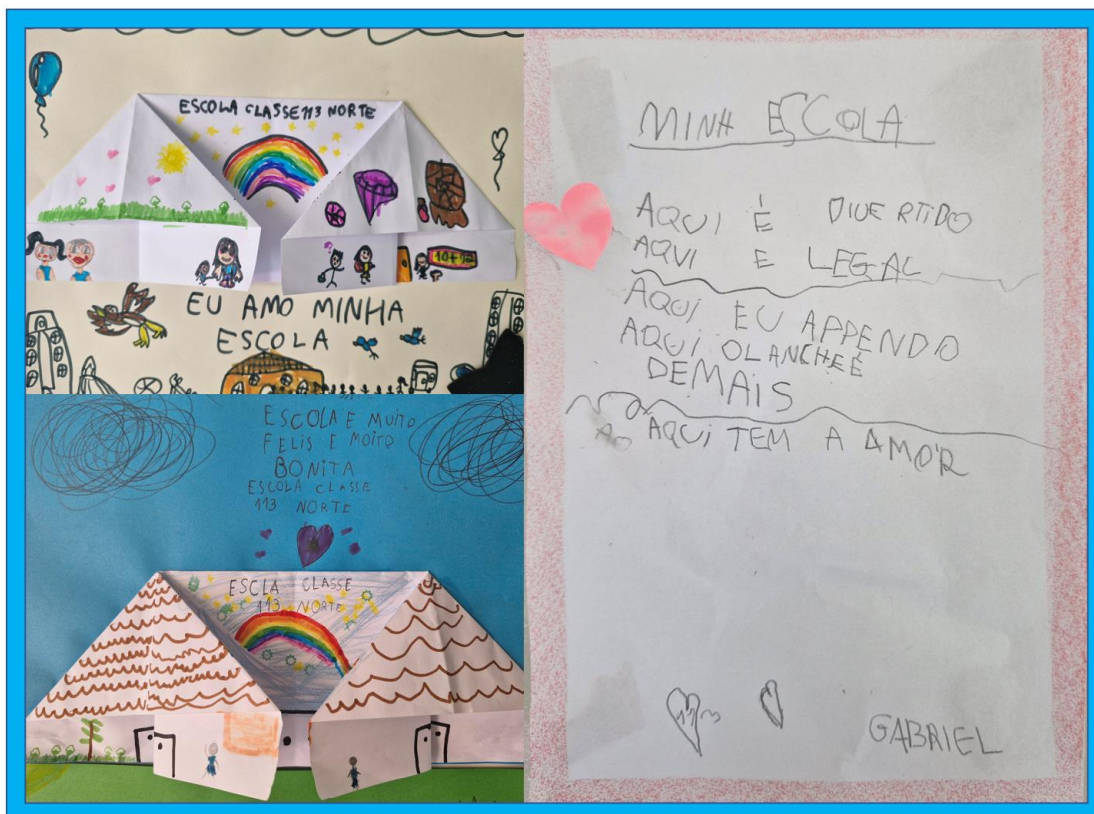 ESCOLA CLASSE 113 NORTE
10+10
EU AMO MINHA
ESCOLA
ESCOLA E MUITO
FELIS E MOITO
BONITA
ESCOLA CLASSE
113 NORTE
ESCLA CLASSE
113 NORTE
MINH ESCOLA
AQUI É DIVERTIDO
AQUI E LEGAL
AQUI EU APPENDO
AQUI OLANCHEÉ
DEMAIS
AQUI TEM A AMOR
GABRIEL